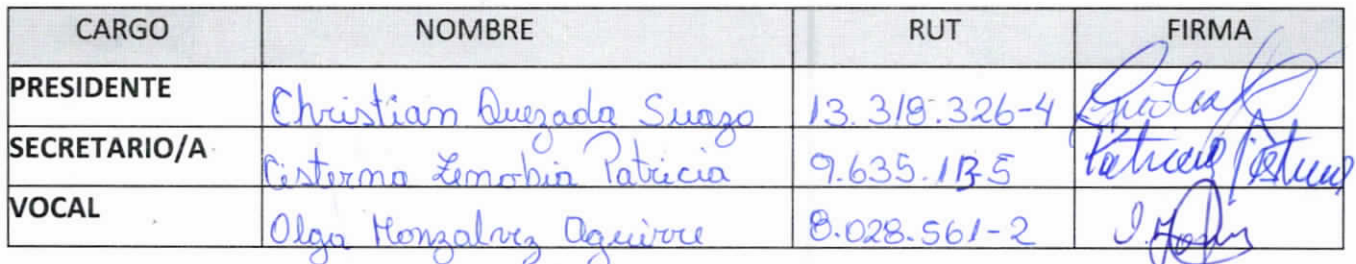 CARGO NOMBRE RUT FIRMA
PRESIDENTE Christian Quezada Suazo 13.318.326-4
SECRETARIO/A Cisterna Zenobia Patricia 9.635.
VOCAL Olga Monzalvez Aguirre 8.028.561-2